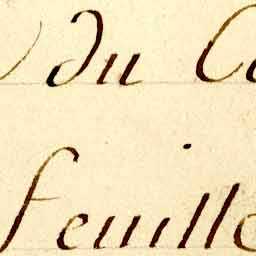 du C
feuille